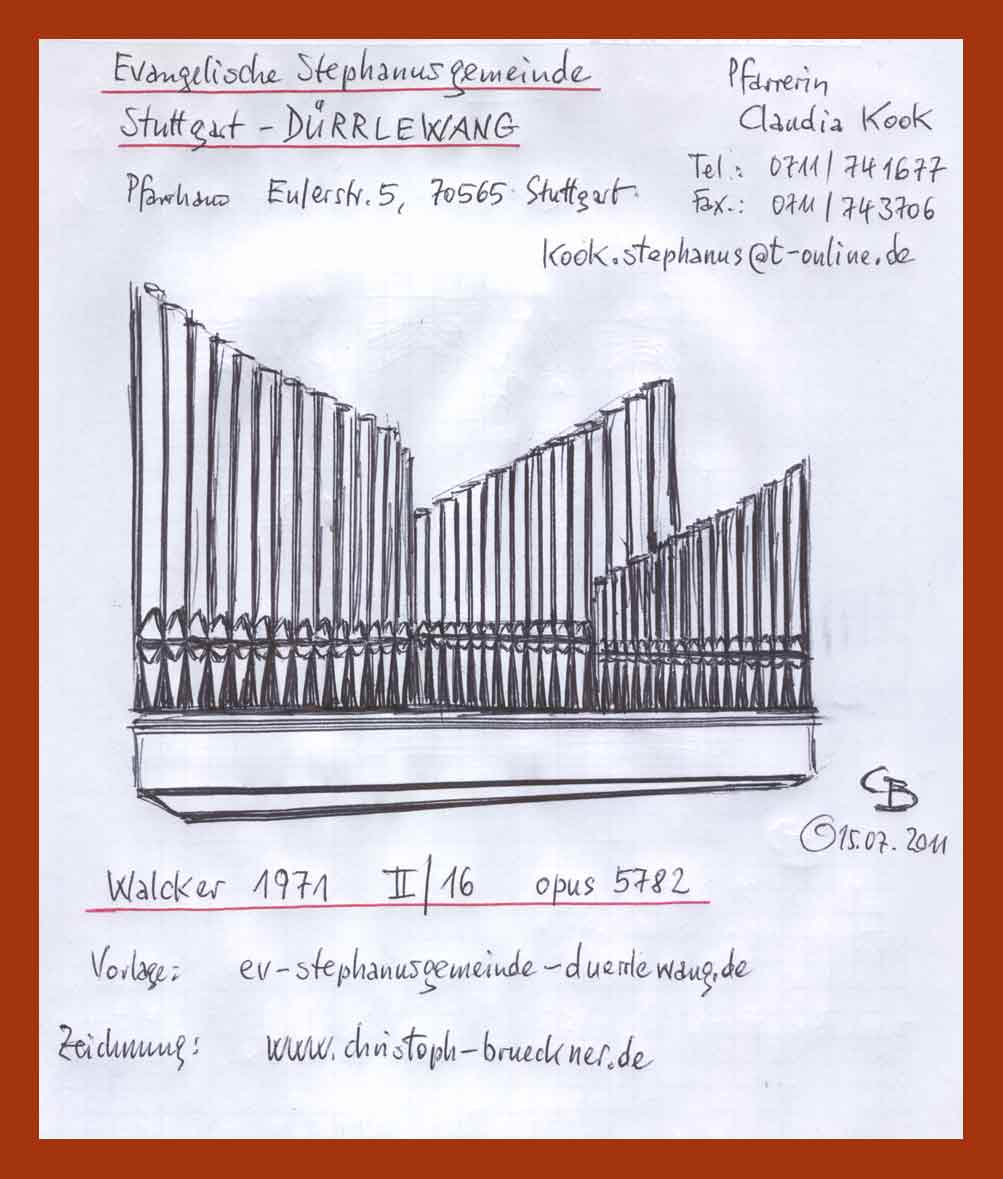 Evangelische Stephanusgemeinde
Stuttgart - DÜRRLEWANG
Pfarrhaus Eulerstr. 5, 70565 Stuttgart
Pfarrerin
Claudia Kook
Tel.: 0711/741677
Fax.: 0711/743706
kook.stephanus@t-online.de
CB
©15.07.2011
Walcker 1971 II/16 opus 5782
Vorlage: ev-stephanusgemeinde-duerrlewang.de
Zeichnung: www.christoph-brueckner.de